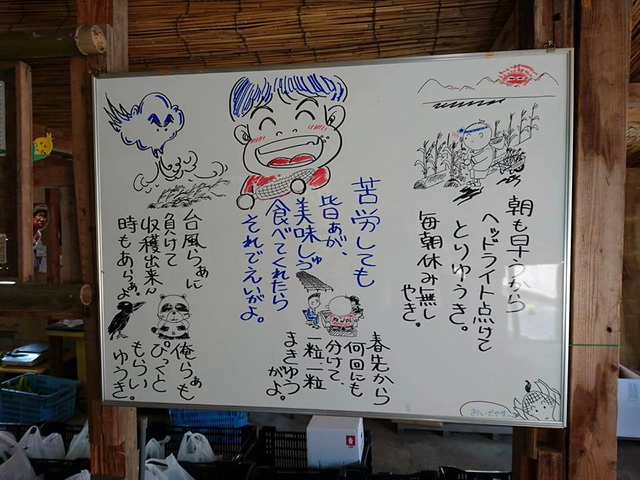 朝も早うから
ヘッドライト点けて
とりゆうき。
毎朝休み無し
やき。
春先から
何回にも
分けて、
一粒一粒
まきゆう
がよ。
苦労しても
皆ぁが、
美味しゅう
食べてくれたら
それでえいがよ。
台風らぁに
負けて
収穫出来ん
時もあらぁよ。
俺らぁも
びっくと
もらい
ゆうき。
おいでやす